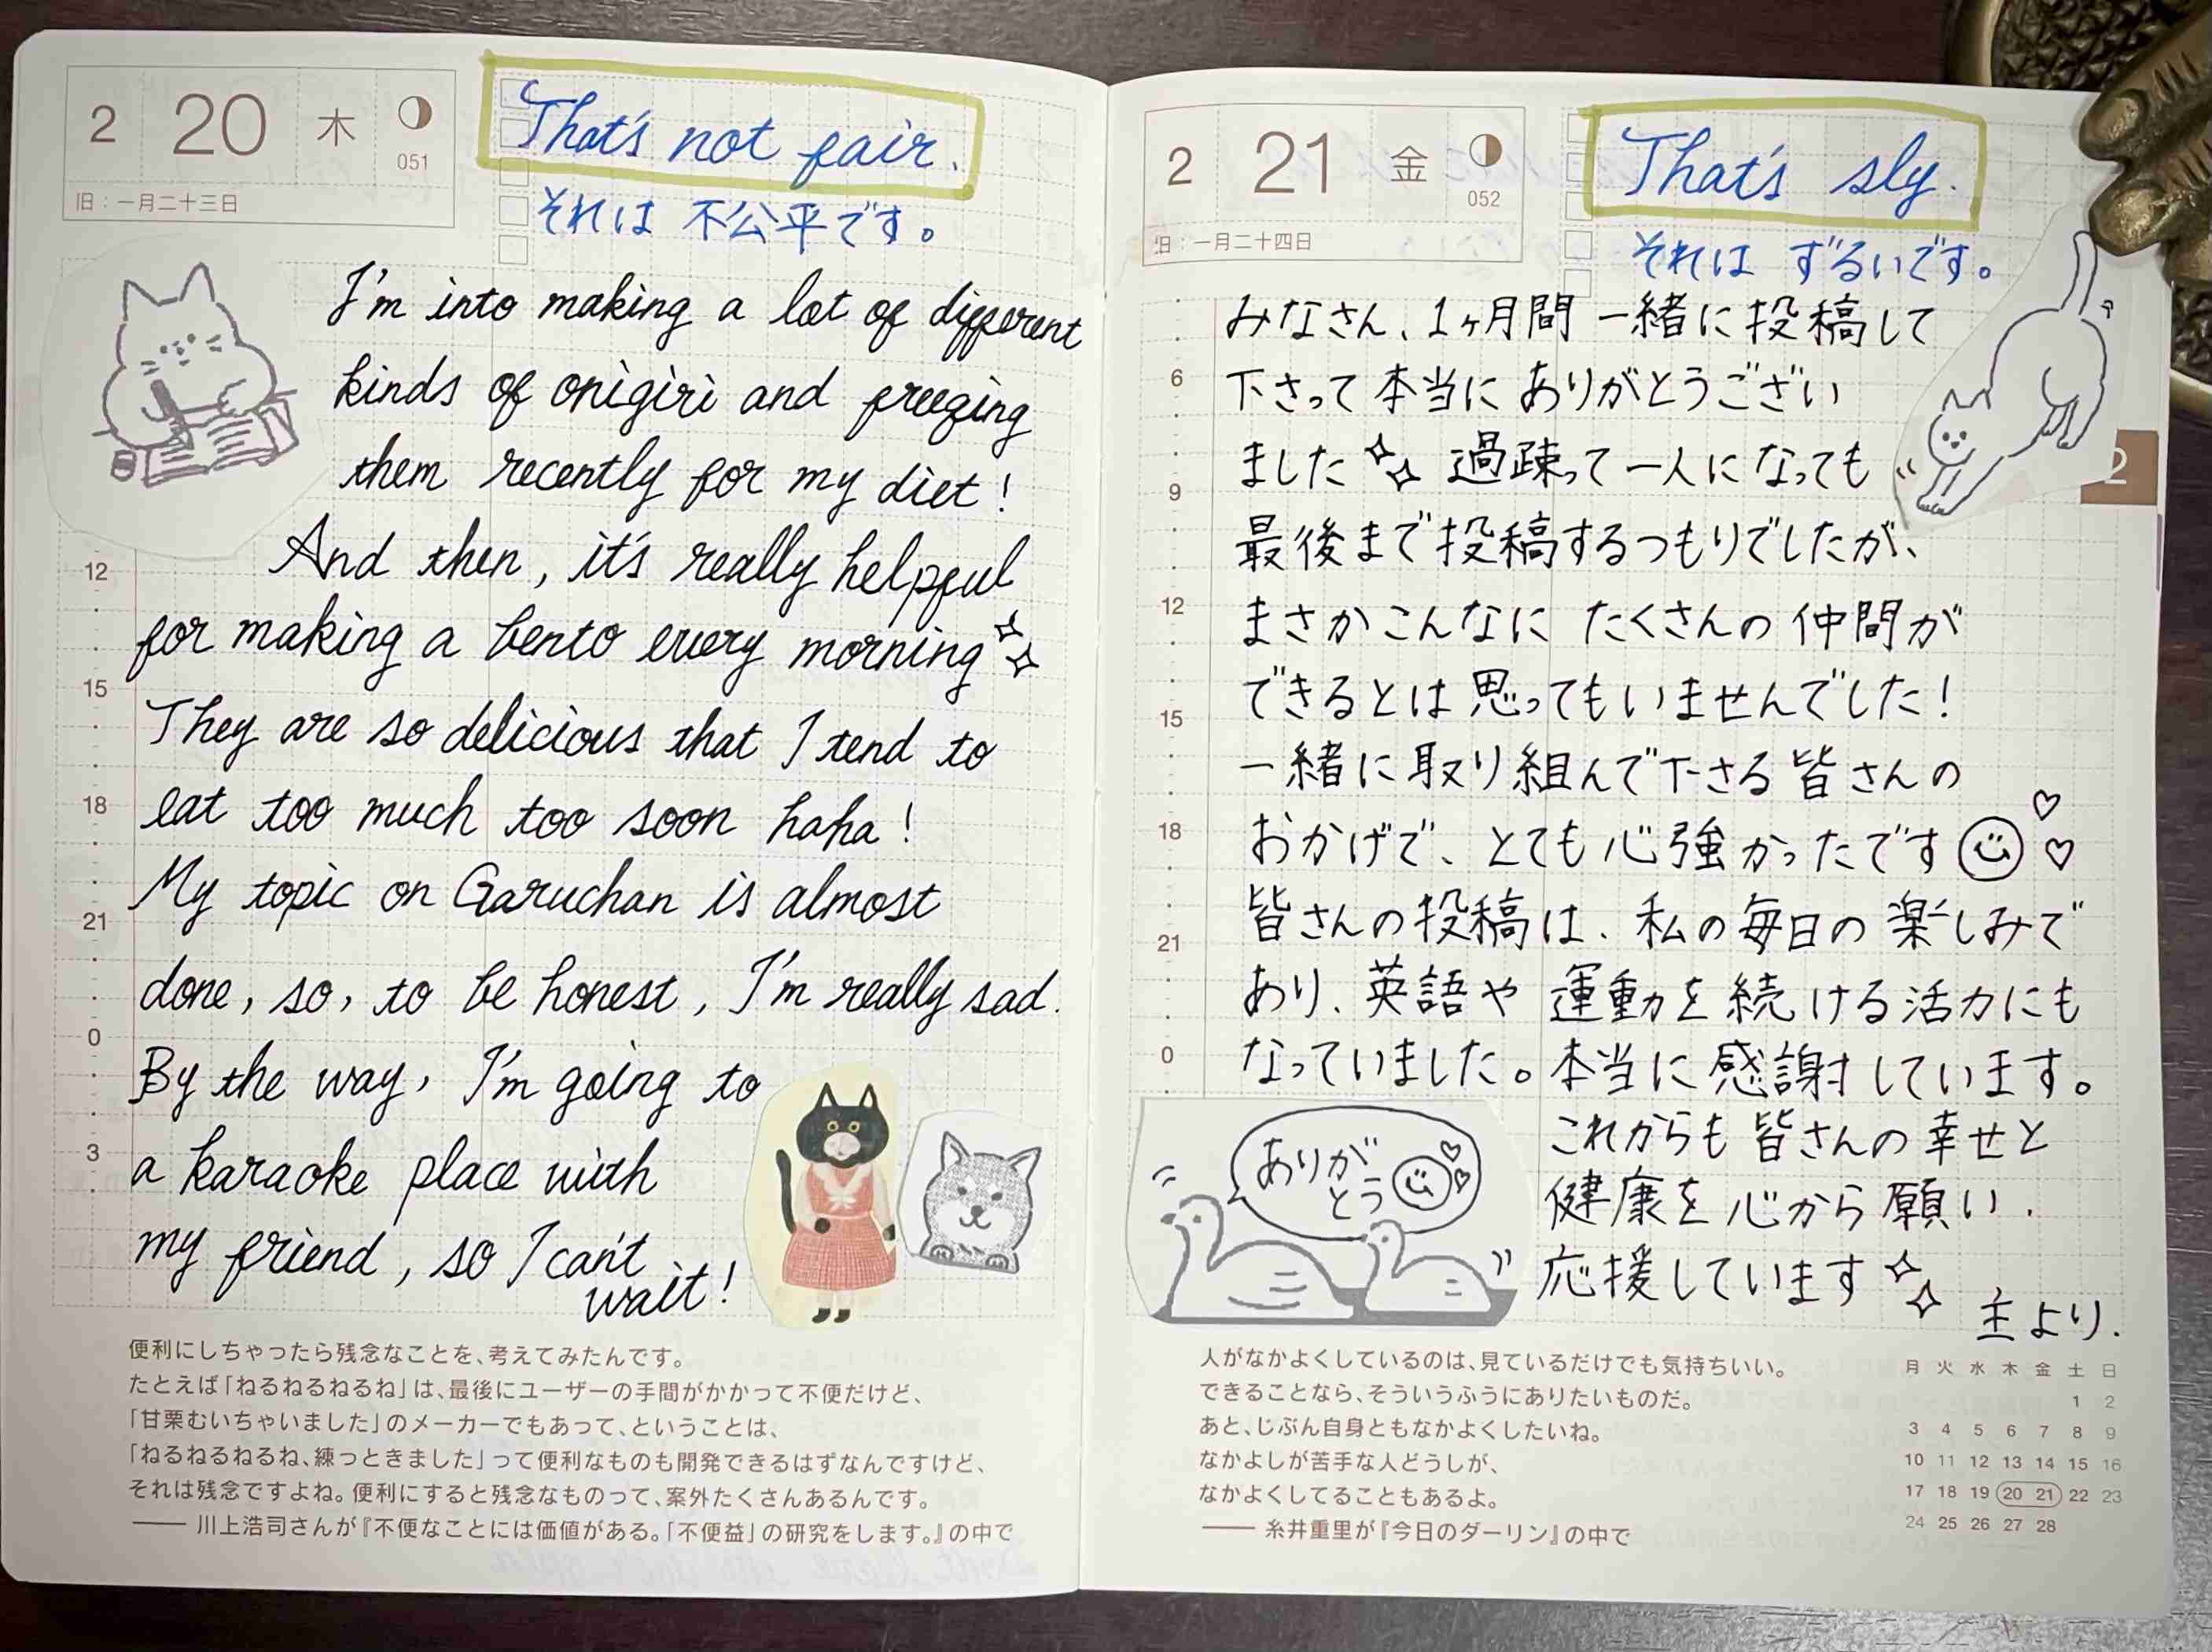 2 20 木
051
旧：一月二十三日
That's not fair.
それは 不公平です。
I'm into making a lot of different
kinds of onigiri and freezing
them recently for my diet!
And then, it's really helpful
for making a bento every morning
They are so delicious that I tend to
eat too much too soon haha!
My topic on Garuchan is almost
done, so, to be honest, I'm really sad.
By the way, I'm going to
a karaoke place with
my friend, so I can't
wait!
12
15
18
21
0
3
便利にしちゃったら残念なことを、考えてみたんです。
たとえば「ねるねるねるね」は、最後にユーザーの手間がかかって不便だけど、
「甘栗むいちゃいました」のメーカーでもあって、ということは、
「ねるねるねるね、練っときました」って便利なものも開発できるはずなんですけど、
それは残念ですよね。便利にすると残念なものって、案外たくさんあるんです。
―― 川上浩司さんが『不便なことには価値がある。「不便益」の研究をします。』の中で
2 21 金
052
旧：一月二十四日
That's sly.
それは ずるいです。
みなさん、1ヶ月間 一緒に投稿して
下さって本当に ありがとうござい
ました 過疎って一人になっても
最後まで投稿するつもりでしたが、
まさかこんなに たくさんの仲間が
できるとは思ってもいませんでした！
一緒に取り組んで下さる皆さんの
おかげで、とても心強かったです
皆さんの投稿は、私の毎日の楽しみで
あり、英語や運動を続ける活力にも
なっていました。本当に感謝しています。
これからも皆さんの幸せと
健康を心から願い、
応援しています
主より.
ありが
とう
6
9
12
15
18
21
0
2
人がなかよくしているのは、見ているだけでも気持ちいい。
できることなら、そういうふうにありたいものだ。
あと、じぶん自身ともなかよくしたいね。
なかよしが苦手な人どうしが、
なかよくしてることもあるよ。
―― 糸井重里が『今日のダーリン』の中で
月 火 水 木 金 土 日
1 2
3 4 5 6 7 8 9
10 11 12 13 14 15 16
17 18 19 20 21 22 23
24 25 26 27 28